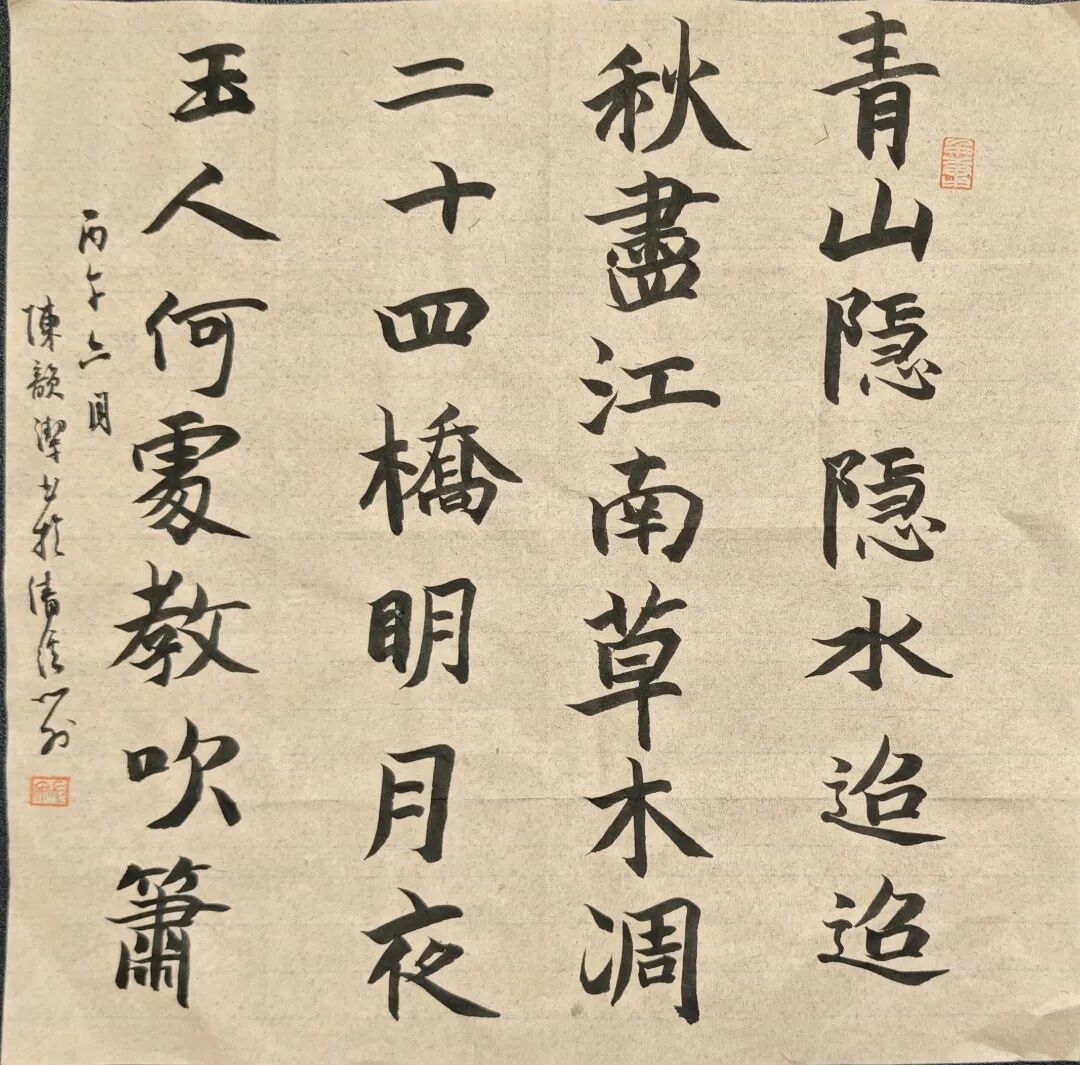 青山隐隐水迢迢
秋盡江南草木凋
二十四橋明月夜
玉人何處教吹簫
丙午六月
陳韻潔書於清溪